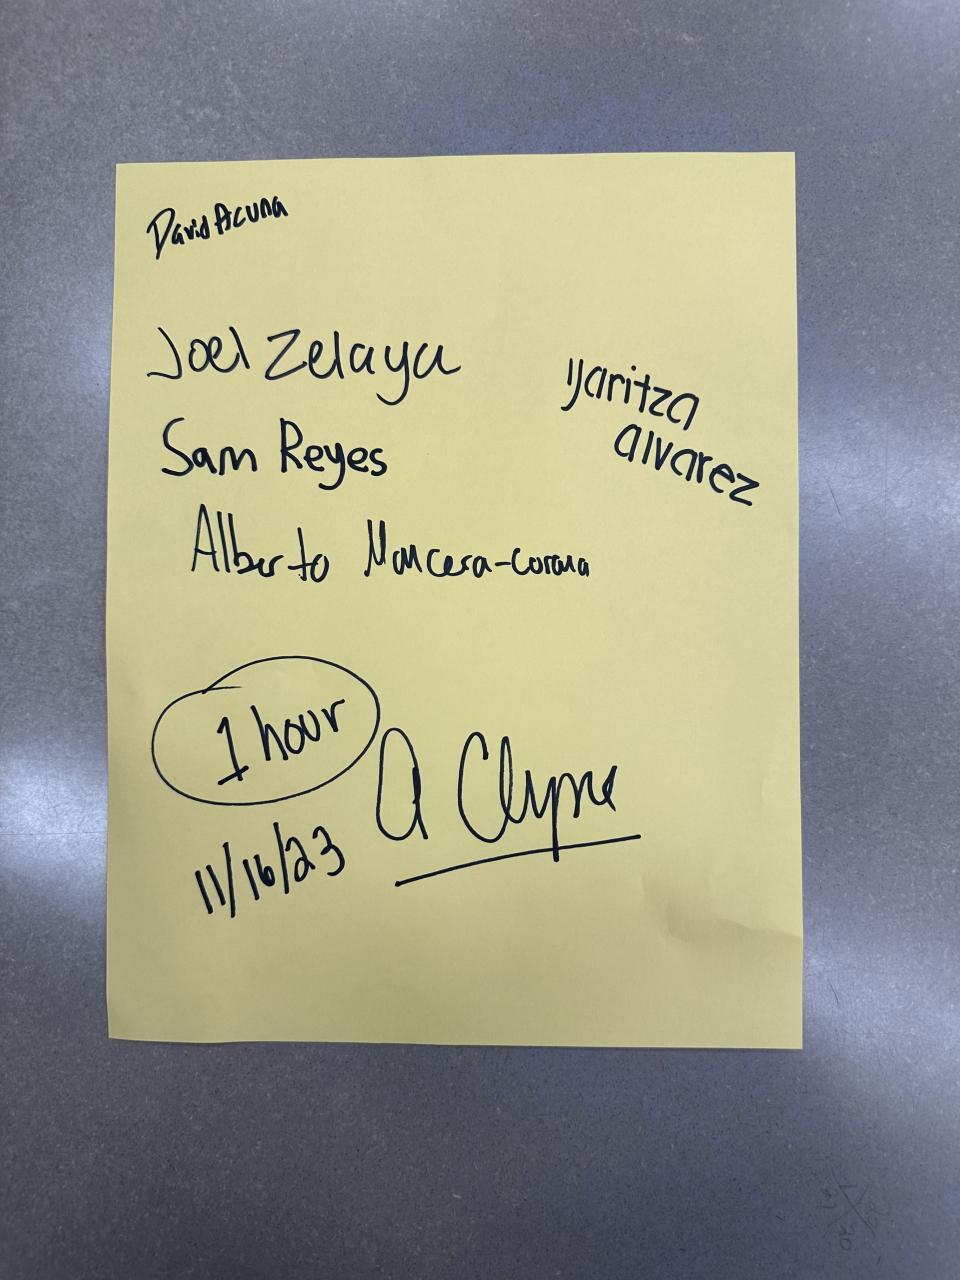 David Acuna
Joel Zelaya
yaritza
alvarez
Sam Reyes
Alberto
1 hour
A Clyne
11/16/23